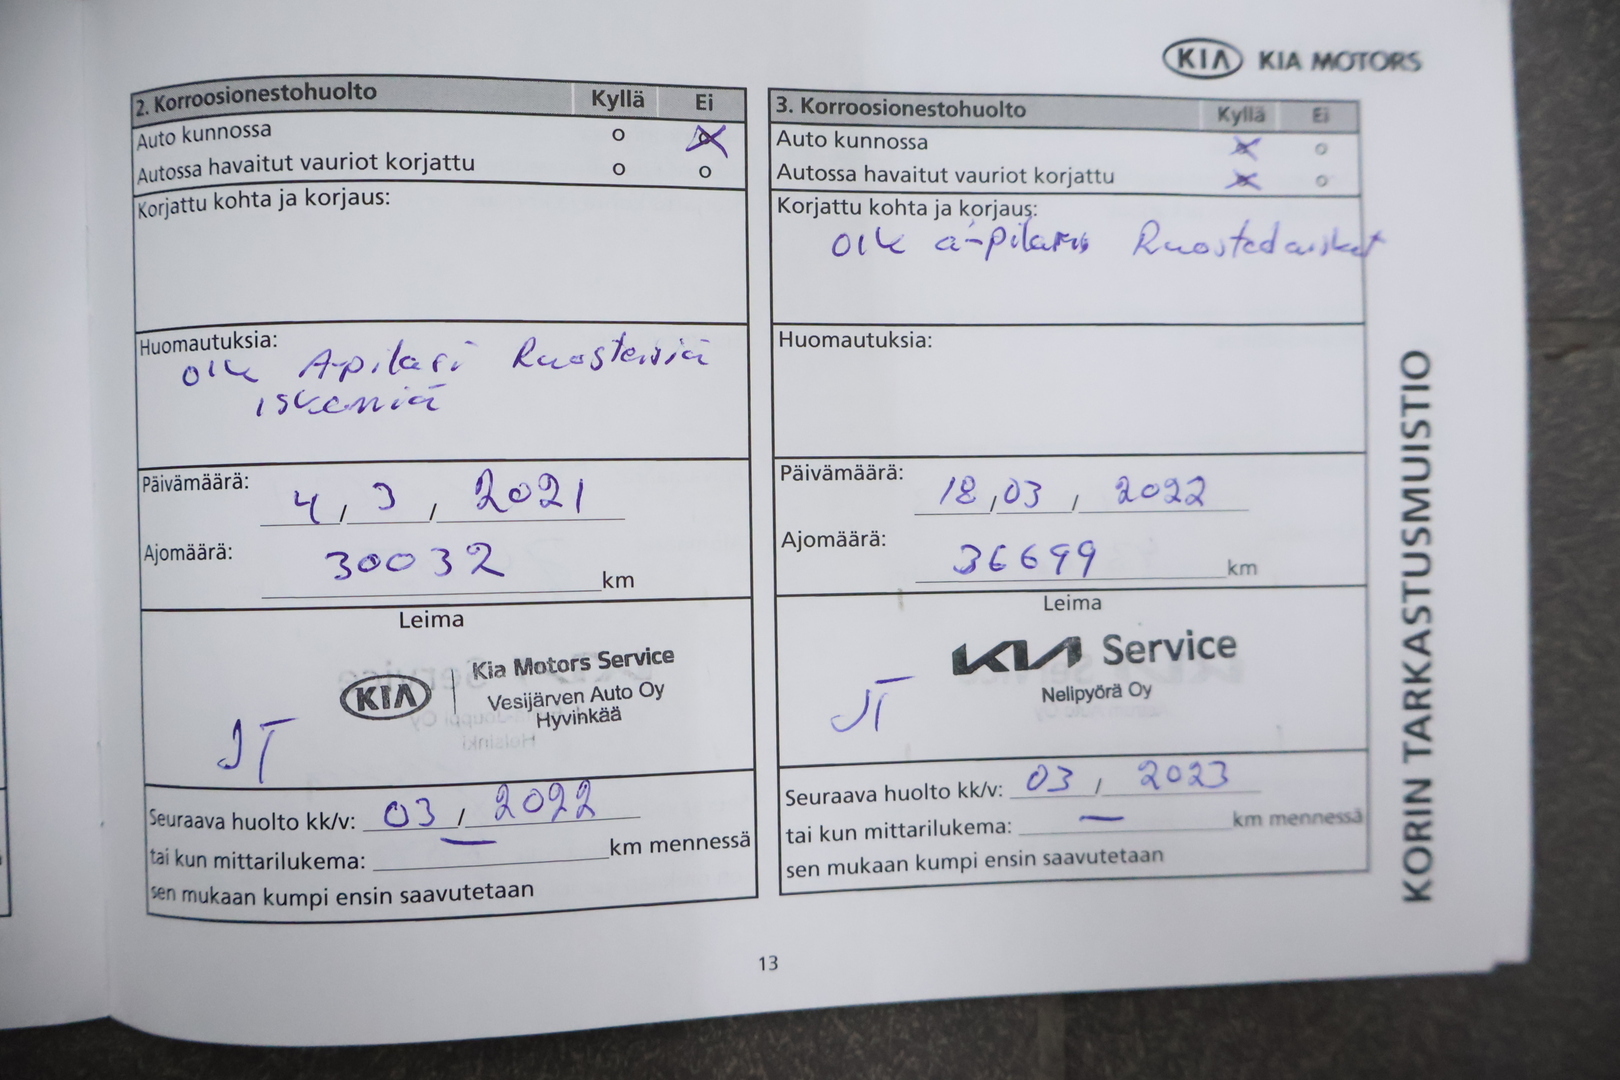 KIA KIA MOTORS
2. Korroosionestohuolto Kyllä Ei
Auto kunnossa o o
Autossa havaitut vauriot korjattu o o
Korjattu kohta ja korjaus:
Huomautuksia:
oik A-pilari Ruosteisia
iskemiä
Päivämäärä:
4 / 3 / 2021
Ajomäärä:
30032 km
Leima
KIA
Kia Motors Service
Vesijärven Auto Oy
Hyvinkää
JT
Seuraava huolto kk/v: 03 / 2022
tai kun mittarilukema: — km mennessä
sen mukaan kumpi ensin saavutetaan
3. Korroosionestohuolto Kyllä Ei
Auto kunnossa x o
Autossa havaitut vauriot korjattu x o
Korjattu kohta ja korjaus:
oik a-pilaris
Huomautuksia:
Päivämäärä:
18 / 03 / 2022
Ajomäärä:
36699 km
Leima
KIA Service
Nelipyörä Oy
JT
Seuraava huolto kk/v: 03 / 2023
tai kun mittarilukema: — km mennessä
sen mukaan kumpi ensin saavutetaan
KORIN TARKASTUSMUISTIO
13